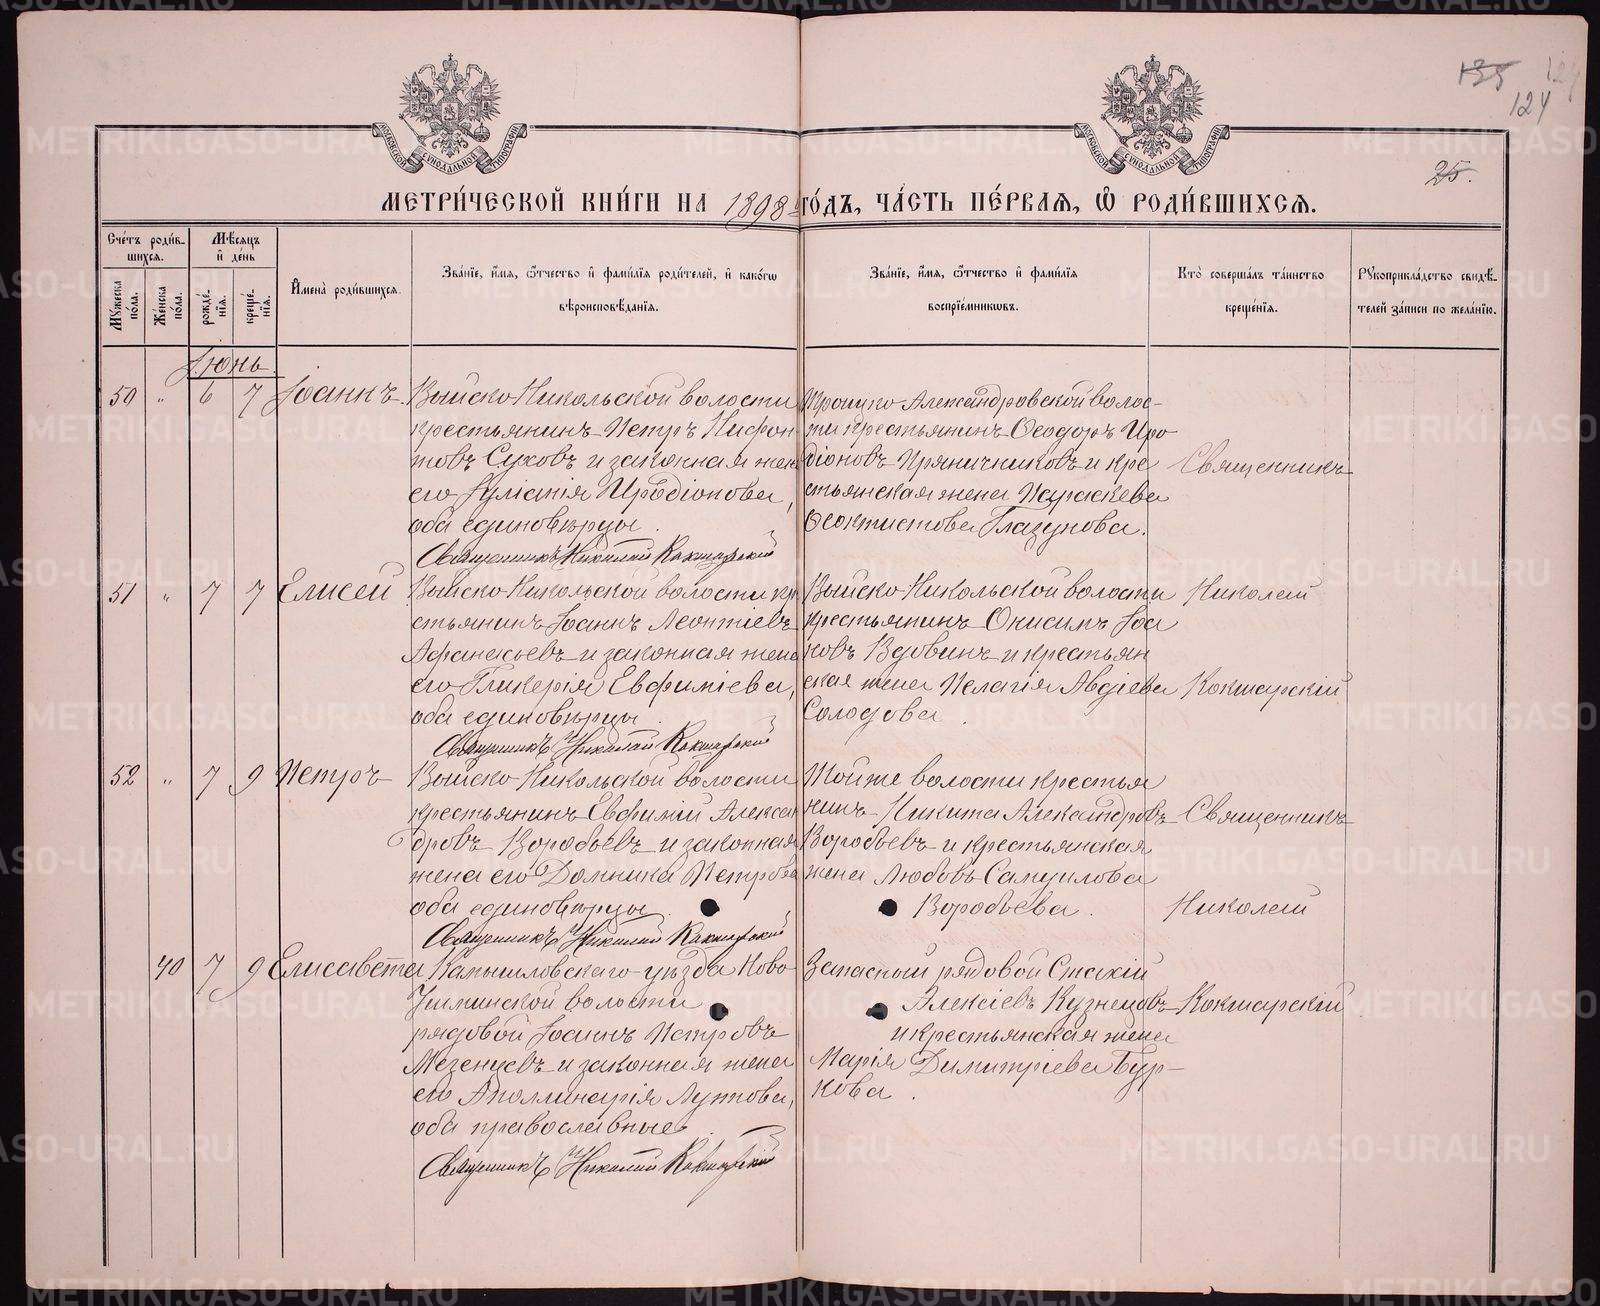 135 124
124
25.
МЕТРИ́ЧЕСКОЙ КНИ́ГИ НА 1898 ГО́ДЪ, ЧА́СТЬ ПЕ́РВАЯ, Ѡ РОДИ́ВШИХСЯ.
Сче́тъ роди́в-
шихся.
Мѣ́сяцъ
и де́нь
Мꙋ́жеска по́ла.
Же́нска по́ла.
рожде́нїя.
креще́нїя.
Имена̀ роди́вшихся.
Зва́нїе, и́мя, ѻ҆́тчество и фами́лїя роди́телей, и како́гѡ
вѣроисповѣ́данїя.
Зва́нїе, и́мя, ѻ҆́тчество и фами́лїя
воспрїе́мникѡвъ.
Кто̀ соверша́лъ та́инство
креще́нїя.
Рꙋкоприкла́дство свидѣ́-
телей за́писи по жела́нїю.
Іюнь.
50 " 6 7 Іоаннъ.
Выйско-Никольской волости
крестьянинъ Петръ Нифон
товъ Суховъ и законная жена
его Іуліанія Иродіонова,
оба единовѣрцы.
Священникъ Николай Кокшарскій
Троицко-Александровской волос-
ти крестьянинъ Ѳеодоръ Иро
діоновъ Пряничниковъ и кре
стьянская жена Параскева
Ѳеоктистова Глазунова.
Священникъ
51 " 7 7 Елисей
Выйско-Никольской волости кр
стьянинъ Іоаннъ Леонтіевъ
Афанасьевъ и законная жена
его Гликерія Евфиміева,
оба единовѣрцы.
Священникъ Николай Кокшарскій
Выйско-Никольской волости
крестьянинъ Онисимъ Іоа
ковъ Вдовинъ и крестьян
ская жена Пелагія Авдіева
Солодова.
Николай
Кокшарскій
52 " 7 9 Петръ
Выйско-Никольской волости
крестьянинъ Евфимій Алексан
дровъ Воробьевъ и законная
жена его Домника Петрова
оба единовѣрцы.
Священникъ Николай Кокшарскій
Той же волости крестья
нинъ Никита Александровъ
Воробьевъ и крестьянская
жена Любовь Самуилова
Воробьева.
Священникъ
Николай
40 7 9 Елисавета
Камышловскаго уѣзда Ново-
волости
рядовой Іоаннъ Петровъ
Мезенцевъ и законная жена
его Аполлинарія Луппова,
оба православные.
Священникъ Николай Кокшарскій
Запасный рядовой Стахій
Алексіевъ Кузнецовъ
и крестьянская жена
Марія Димитріева Бур-
кова.
Кокшарскій
METRIKI.GASO-URAL.RU